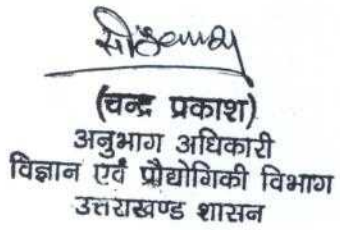 (चन्द्र प्रकाश)
अनुभाग अधिकारी
विज्ञान एवं प्रौद्योगिकी विभाग
उत्तराखण्ड शासन